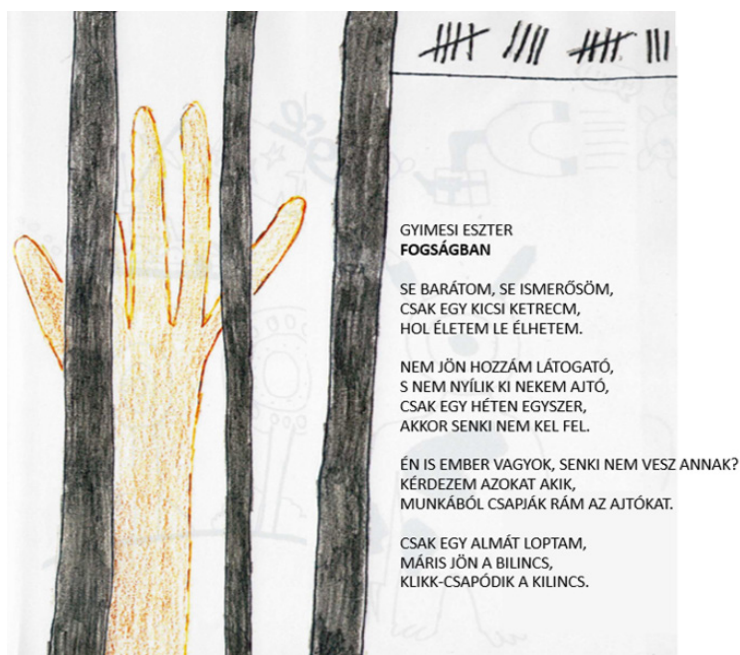 GYIMESI ESZTER
FOGSÁGBAN
SE BARÁTOM, SE ISMERŐSÖM,
CSAK EGY KICSI KETRECM,
HOL ÉLETEM LE ÉLHETEM.
NEM JÖN HOZZÁM LÁTOGATÓ,
S NEM NYÍLIK KI NEKEM AJTÓ,
CSAK EGY HÉTEN EGYSZER,
AKKOR SENKI NEM KEL FEL.
ÉN IS EMBER VAGYOK, SENKI NEM VESZ ANNAK?
KÉRDEZEM AZOKAT AKIK,
MUNKÁBÓL CSAPJÁK RÁM AZ AJTÓKAT.
CSAK EGY ALMÁT LOPTAM,
MÁRIS JÖN A BILINCS,
KLIKK-CSAPÓDIK A KILINCS.